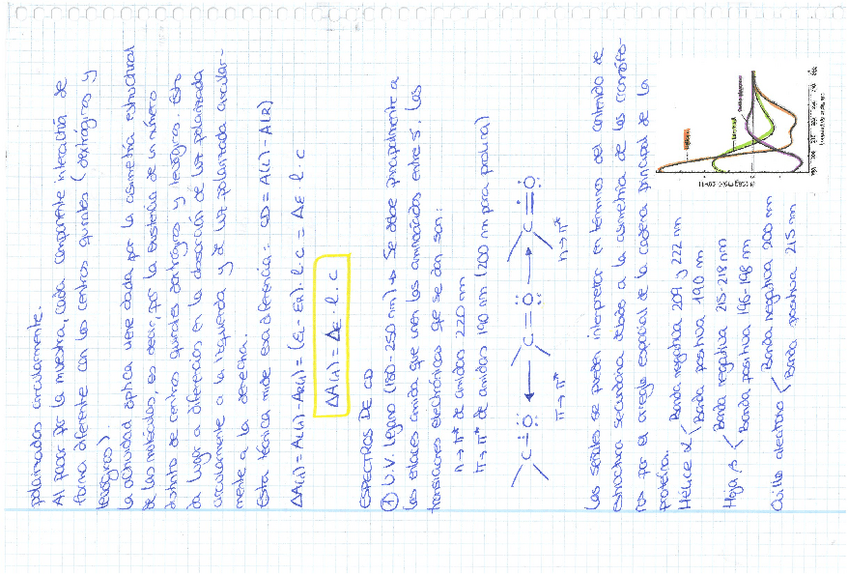 polarizadas circularmente.
Al pasar por la muestra, cada componente interactúa de
forma diferente con los centros quirales (dextrógiros y
levógiros).
La actividad óptica viene dada por la asimetría estructural
de las moléculas, es decir, por la existencia de un número
distinto de centros quirales dextrógiros y levógiros. Esto
da lugar a diferencias en la absorción de luz polarizada
circularmente a la izquierda y de luz polarizada circular-
mente a la derecha.
Esta técnica mide esa diferencia: CD = A(L) - A(R)
ΔA(λ) = AL(λ) - AR(λ) = (εL - εR) · l · c = Δε · l · c
ΔA(λ) = Δε · l · c
ESPECTROS DE CD
① U.V. Lejano (180-250 nm) → Se debe principalmente a
los enlaces amida que unen los aminoácidos entre sí. Las
transiciones electrónicas que se dan son:
n → π* de amidas 220 nm
π → π* de amidas 190 nm (200 nm para prolina)
C=O C=O C=O
π → π* n → π*
Las señales se pueden interpretar en términos del contenido de
estructura secundaria debido a la asimetría de los cromófo-
ros por el arreglo espacial de la cadena principal de la
proteína.
Hélice α < Banda negativa 209 y 222 nm
Banda positiva 190 nm
Hoja β < Banda negativa 215-218 nm
Banda positiva 196-198 nm
Ovillo aleatorio < Banda negativa 200 nm
Banda positiva 215 nm